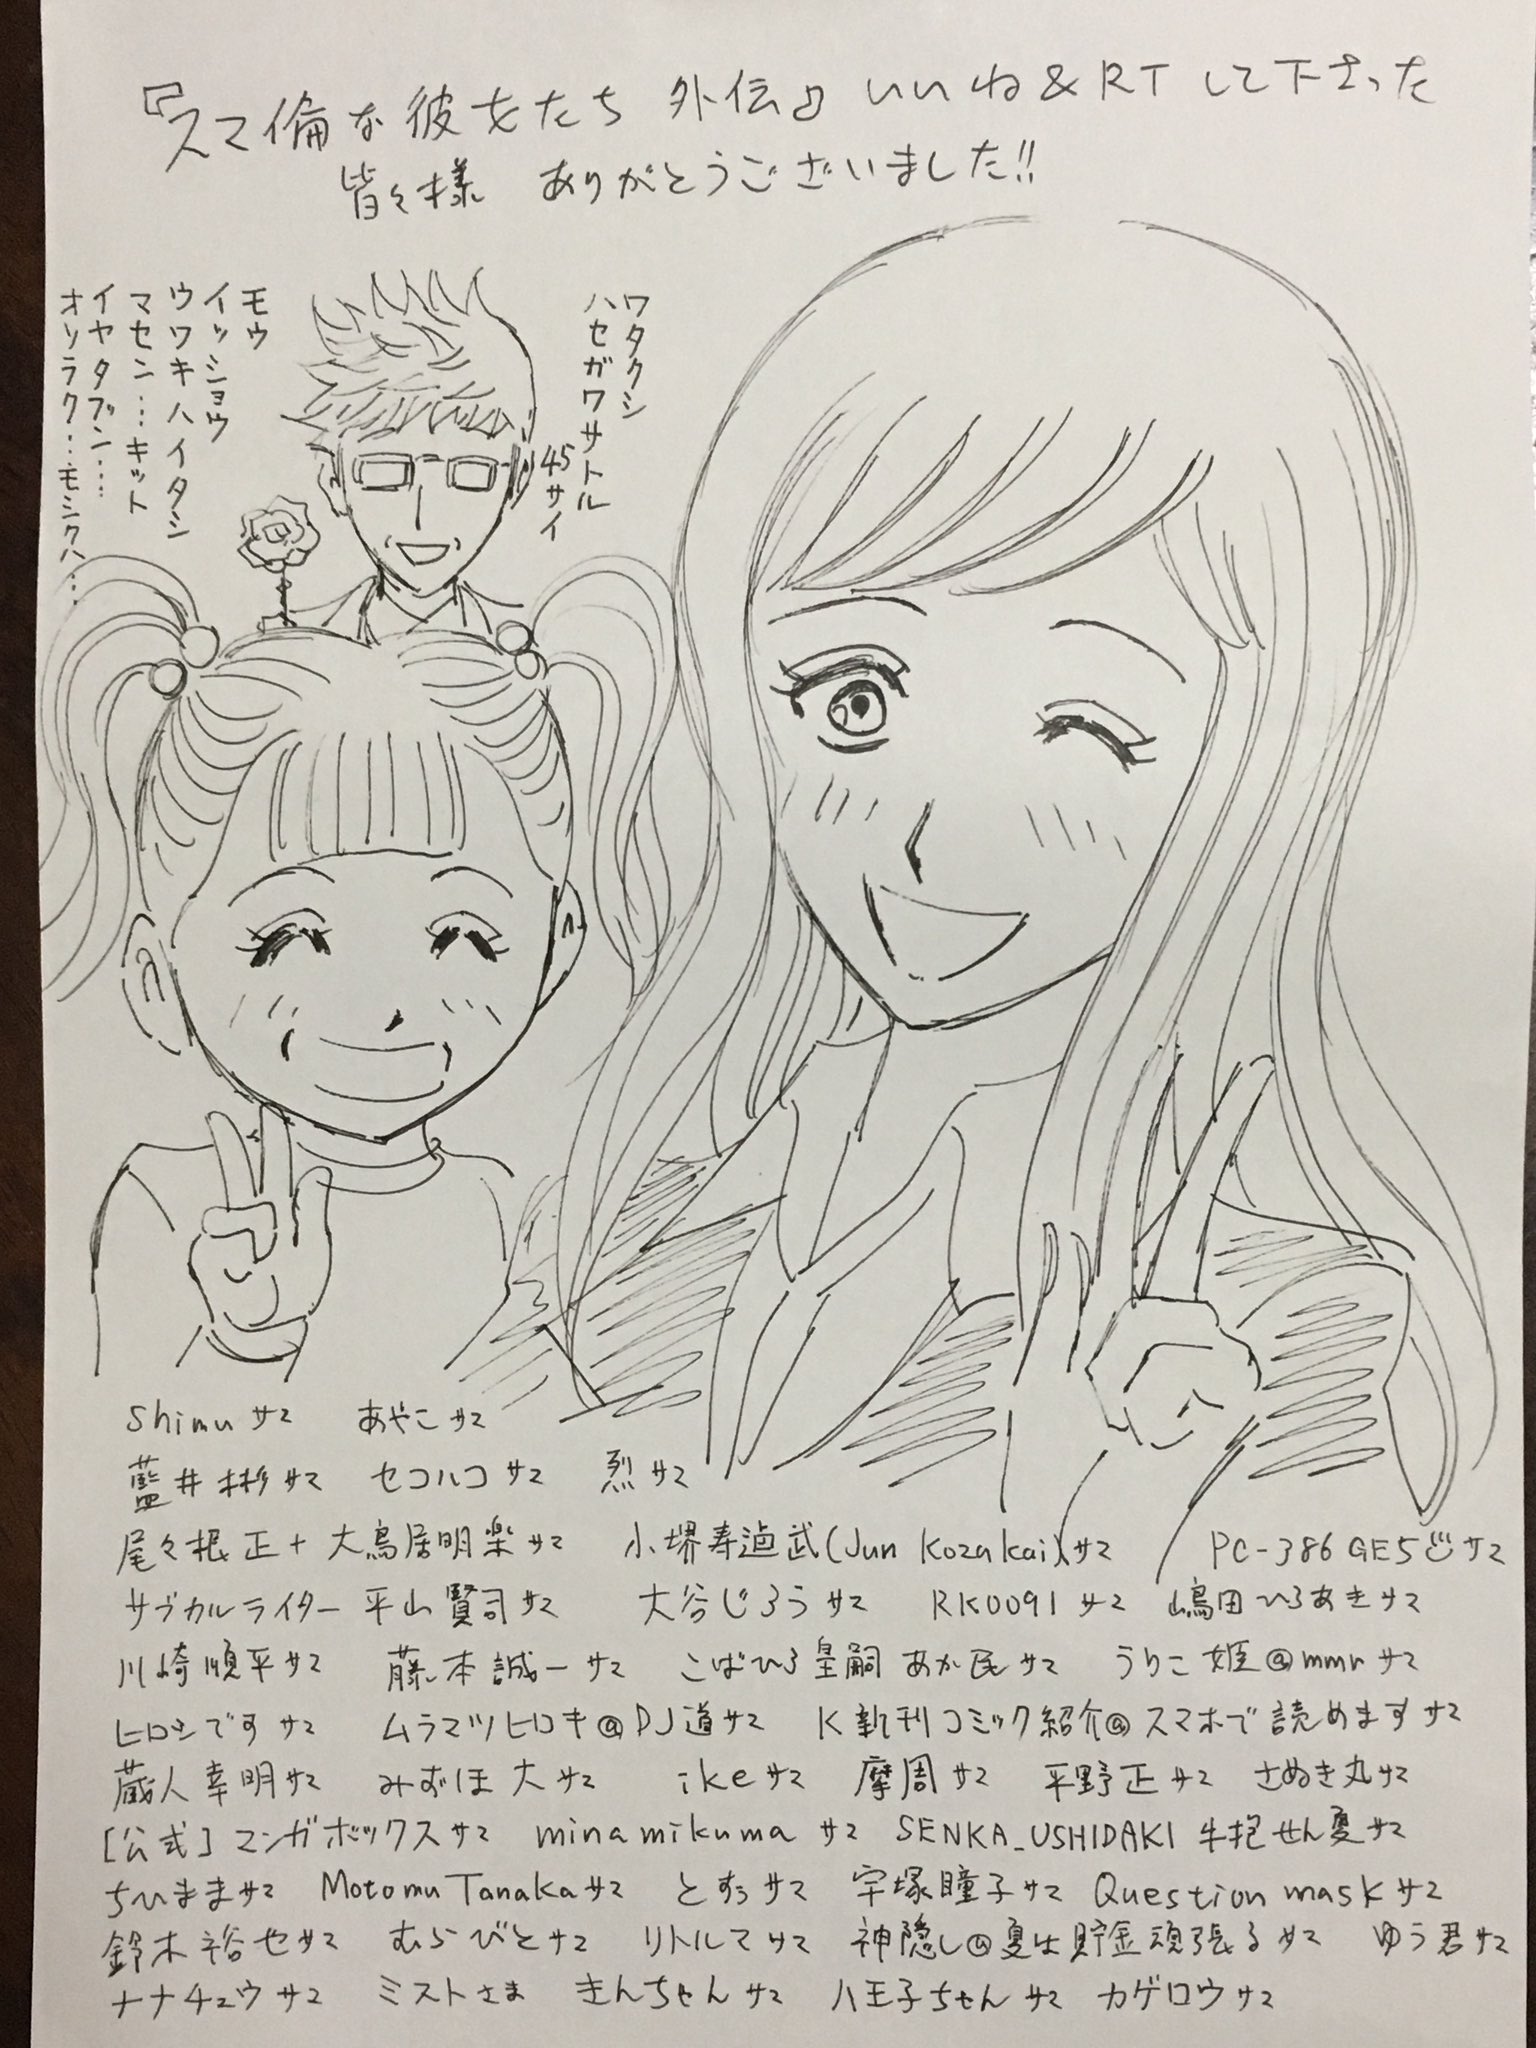 『スマ倫な彼女たち 外伝』いいね&RTして下さった
皆々様 ありがとうございました!!
ワタクシ
ハセガワサトル
45サイ
モウ
イッショウ
ウワキハイタシ
マセン…キット
イヤタブン…
オソラク…モシクハ…
shimuサマ あやこサマ
藍井彬サマ セコハコサマ 烈サマ
尾々根正+大鳥居明楽サマ 小堺寿 武(Jun Kozakai)サマ PC-386 GE5サマ
サブカルライター 平山賢司サマ 大谷じろうサマ RK0091サマ 嶋田ひろあきサマ
川崎順平サマ 藤本誠一サマ こばひろ皇嗣 あか民サマ うりこ姫@mmrサマ
ヒロシですサマ ムラマツヒロキ@DJ道サマ K新刊コミック紹介@スマホで読めますサマ
蔵人幸明サマ みずほ大サマ ikeサマ 摩周サマ 平野正サマ さぬき丸サマ
[公式]マンガボックスサマ minamikumaサマ SENKA_USHIDAKI 牛抱せん夏サマ
ちひままサマ Motomu Tanakaサマ とすぅサマ 宇塚瞳子サマ Question maskサマ
鈴木裕也サマ むらびとサマ リトルマサマ 神隠し@夏は貯金頑張るサマ ゆう君サマ
ナナチュウサマ ミストさま きんちゃんサマ 八王子ちゃんサマ カゲロウサマ